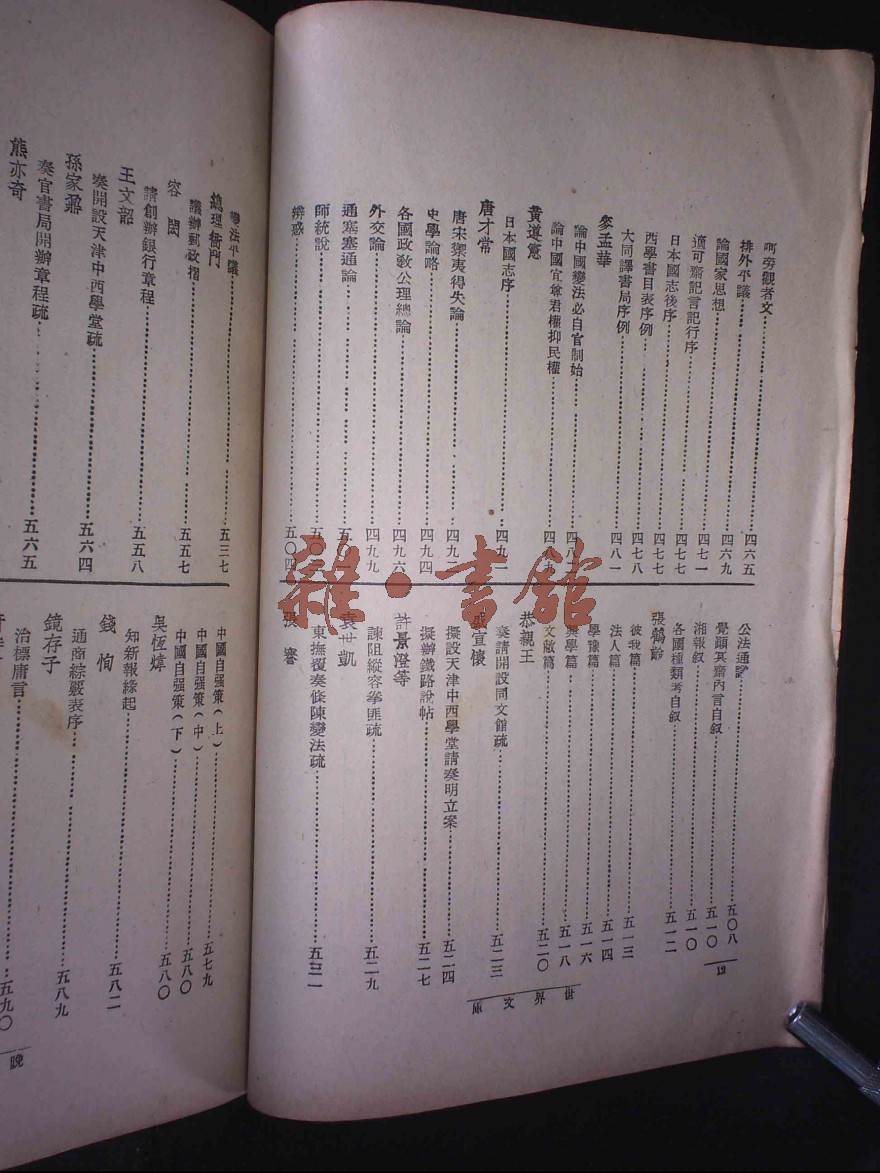 呵旁觀者文
排外平議⋯⋯四六五
論國家思想⋯⋯四六九
適可齋記言記行序⋯⋯四七一
日本國志後序⋯⋯四七七
西學書目表序例⋯⋯四七八
大同譯書局序例⋯⋯四八一
麥孟華
論中國變法必自官制始
論中國宜尊君權抑民權⋯⋯四八九
黃遵憲
日本國志序
唐才常
唐宋禦夷得失論⋯⋯四九二
史學論略⋯⋯四九四
各國政敎公理總論⋯⋯四九六
外交論⋯⋯四九九
通塞塞通論
師統說
辨惑⋯⋯五〇四
公法通論⋯⋯五〇八
覺顛冥齋內言自叙⋯⋯五一〇
湘報叙⋯⋯五一〇
各國種類考自叙⋯⋯五一二
張鶴齡
彼我篇⋯⋯五一三
法人篇⋯⋯五一四
學豫篇⋯⋯五一六
興學篇⋯⋯五一八
文敝篇⋯⋯五二〇
恭親王
奏請開設同文館疏⋯⋯五二三
盛宣懷
擬設天津中西學堂請奏明立案⋯⋯五二四
擬辦鐵路說帖⋯⋯五二七
許景澄等
諫阻縱容拳匪疏⋯⋯五二九
袁世凱
東撫覆奏條陳變法疏⋯⋯五三一
張謇
世界文庫
12
變法平議⋯⋯五三七
總理衙門
議辦郵政摺⋯⋯五五七
容閎
請創辦銀行章程⋯⋯五五八
王文韶
奏開設天津中西學堂疏⋯⋯五六四
孫家鼐
奏官書局開辦章程疏⋯⋯五六五
熊亦奇
中國自强策(上)⋯⋯五七九
中國自强策(中)⋯⋯五八〇
中國自强策(下)⋯⋯五八〇
吳恆煒
知新報緣起⋯⋯五八二
錢恂
通商綜覈表序⋯⋯五八九
鏡存子
治標庸言⋯⋯五九〇
晚
雜·書館